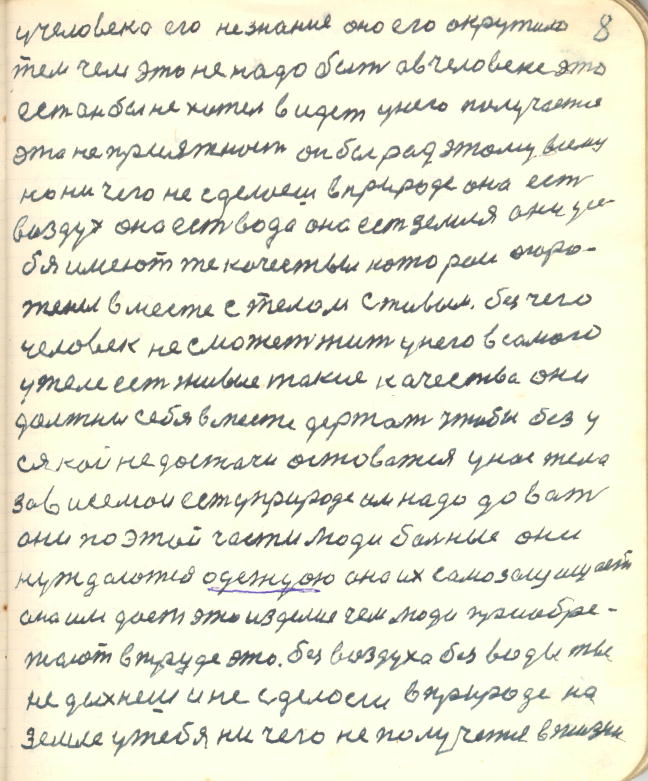 учеловека его не знание оно его окрутило 8
тем чем это не надо быт в человеке это
ест он был не хотел видет унего получается
эта не приятност он был рад этому всему
но ни чего не сделоеш в природе она ест
воздух она ест вода она ест земля они у се-
бя имеют те качествы котораи
жены вместе с телом с живым. без чего
человек не сможет жит унего в самого
у теле ест живые такие качества они
должны себя вместе держат чтобы без у
сякой не достачи остоватся унас тела
зависемои ест уприроде им надо доват
они по этой части люди больные они
нуждаются одеждою она их само защищает
она им дает это изделие чем люди приобре-
тают в труде это. без воздуха без воды ты
не дыхнеш и не сделоеш в природе на
земле утебя ни чего не получится в жизни